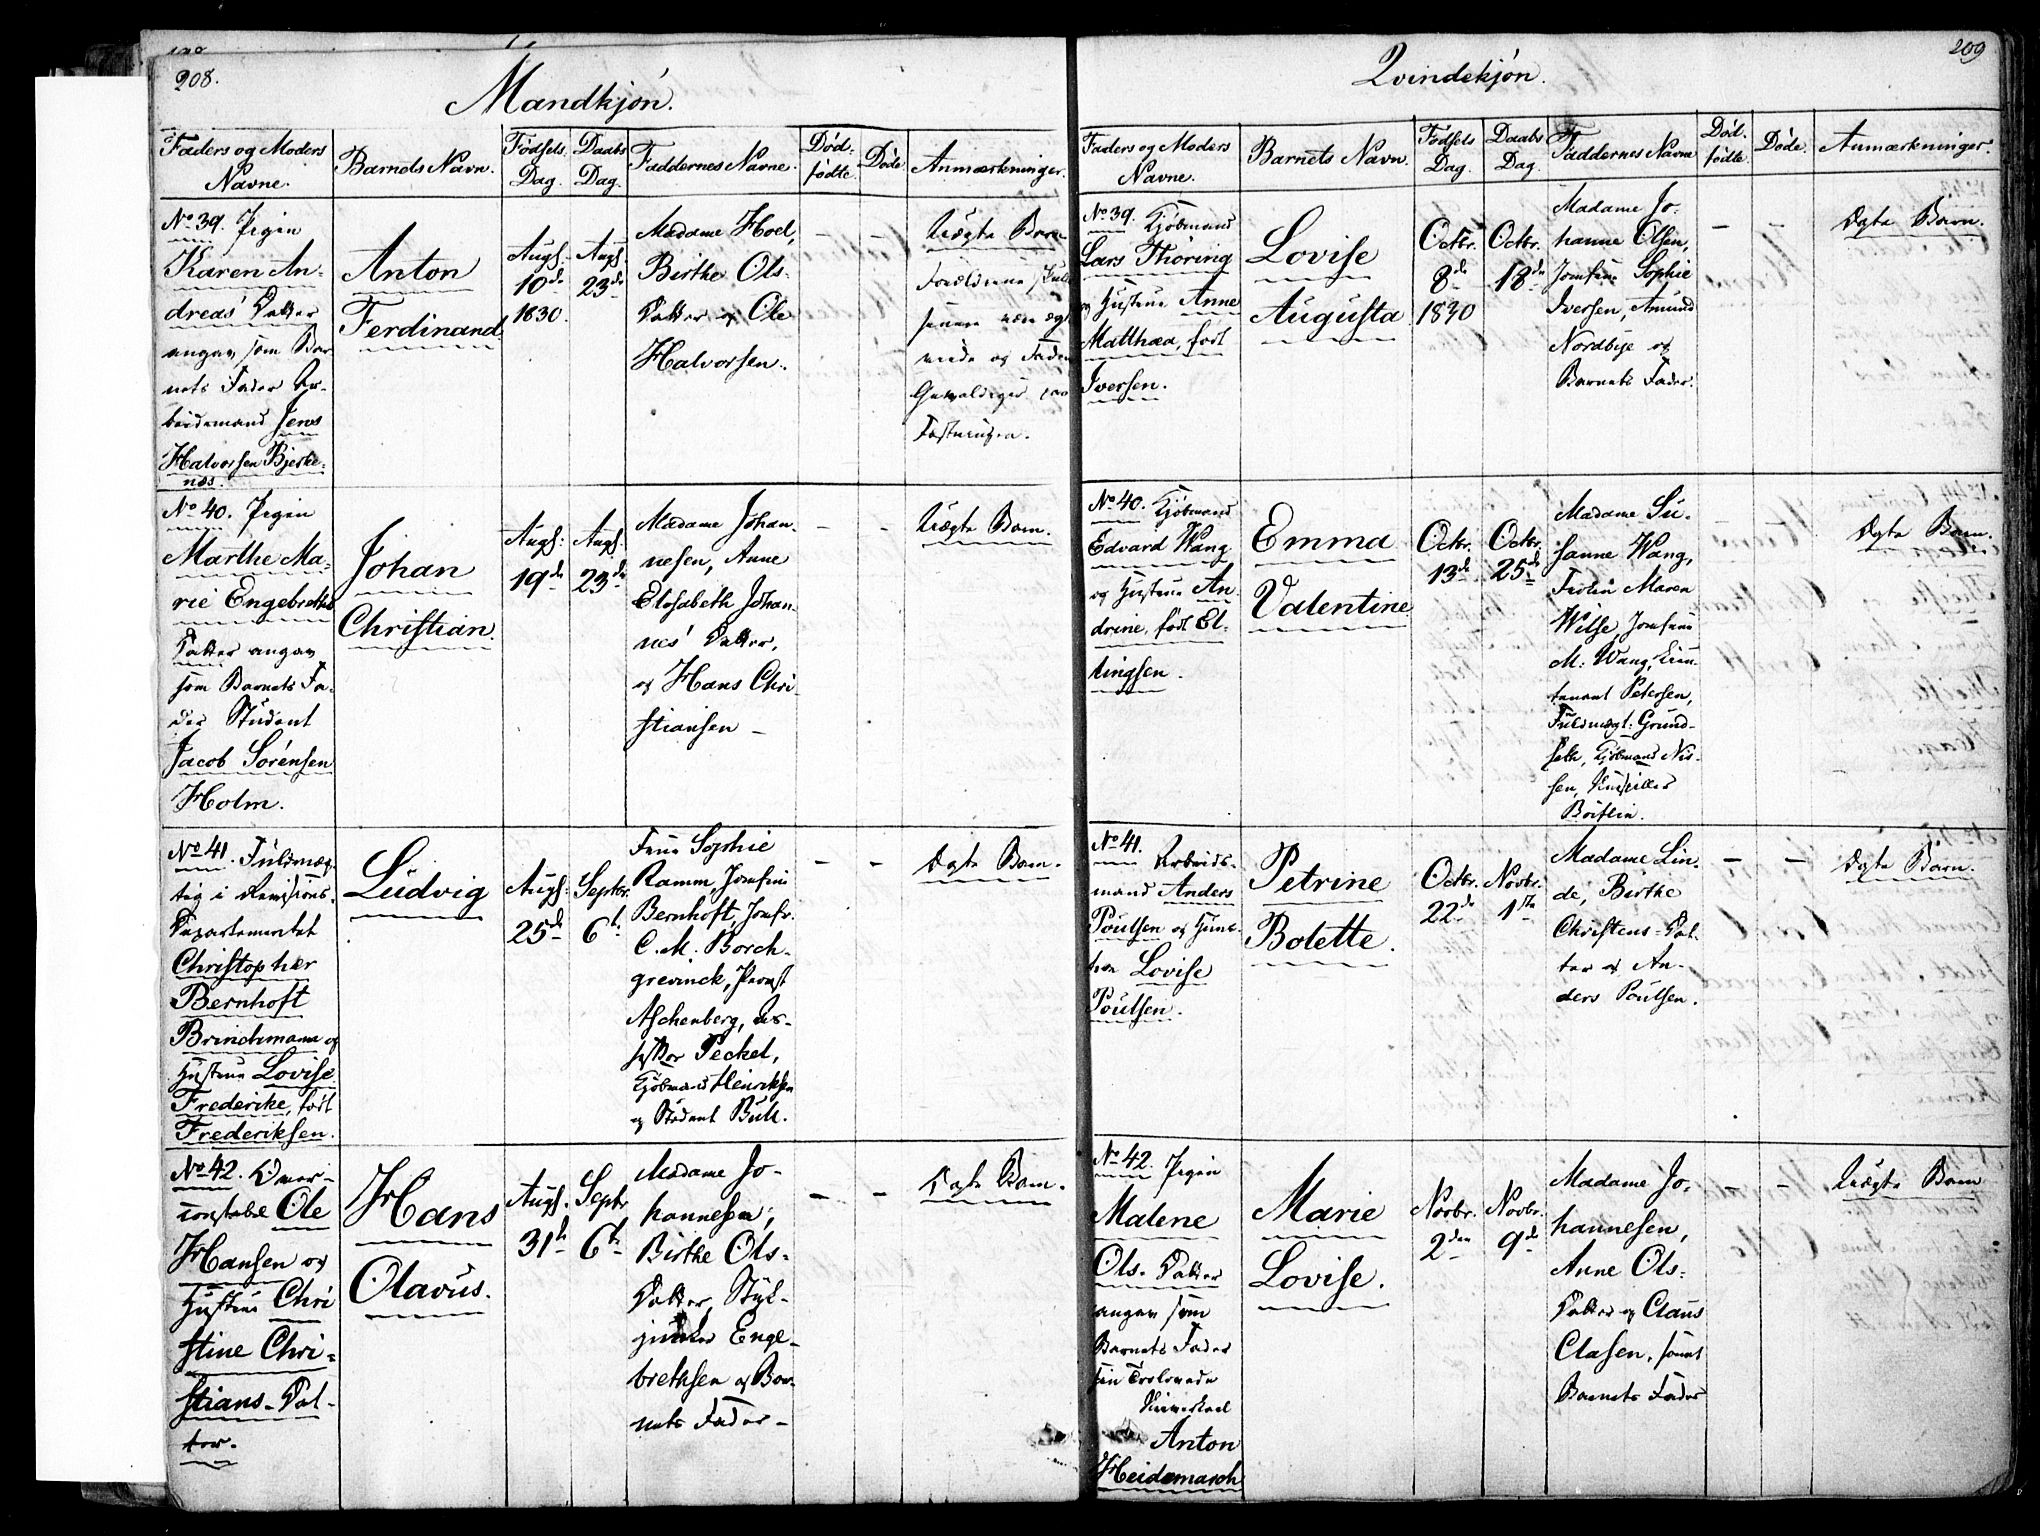 208.
Mandkjøn.
Faders og Moders
Navne.
Barnets Navn.
Fødsels
Dag.
Daabs
Dag.
Faddernes Navne.
Død-
fødte.
Døde.
Anmærkninger.
No 39. Pigen
Karen An-
dreas' Datter
angav som Bar-
nets Fader Ar-
beidsmand Jens
Halvorsen Bjerke-
næs.
Anton
Ferdinand
Augs.
10de
1830.
Augs.
23de
Madame Hoel,
Birthe Ols-
Datter og Ole
Halvorsen.
–
–
Uægte Barn
Forældrene
Fader
No 40. Pigen
Marthe Ma-
rie Engebreths
Datter angav
som Barnets Fa-
der Student
Jacob Sørensen
Holm.
Johan
Christian.
Augs:
19de
Augs.
23de
Madame Johan-
nesen, Anne
Elisabeth Johan-
nes' Datter,
og Hans Chri-
stiansen –
–
–
Uægte Barn.
No 41. Fuldmæg-
tig i Revisions-
Departementet
Christopher
Bernhoft
Brinchmann og
Hustrue Lovise
Frederike, født
Frederiksen.
Ludvig
Augs:
25de
Septbr.
6te
Frue Sophie
Ramm, Jomfru
Bernhoft, Jomfr.
C. M. Borch-
grevinck, Provst
Aschenberg, As-
sessor Peckel,
Kjøbmand Henriksen
og Student Bull.
–
–
Ægte Barn.
No 42. Over-
constabel Ole
Hansen og
Hustrue Chri
stine Chri-
stians-Dat-
ter.
Hans
Olavus.
Augs.
31te
Septr
6te
Madame Jo-
hannesen,
Birthe Ols-
Datter, Styk-
junker Enge-
brethsen og Bar-
nets Fader –
–
–
Ægte Barn.
209
Qvindekjøn.
Faders og Moders
Navne.
Barnets Navn.
Fødsels
Dag.
Daabs
Dag.
Faddernes Navne
Død-
fødte.
Døde.
Anmærkninger.
No 39. Kjøbmand
Lars Thoring
og Hustrue Anne
Matthea, født
Iversen.
Lovise
Augusta
Octbr.
8de
1830
Octbr.
18de
Madame Jo-
hanne Olsen,
Jomfrue Sophie
Iversen, Amund
Nordbye og
Barnets Fader.
–
–
Ægte Barn.
No 40. Kjøbmand
Edvard Wang
og Hustrue An
drine, født El-
lingsen.
Emma
Valentine
Octbr.
13de
Octbr.
25de
Madame Su-
sanne Wang,
Frøken Maren
Wilse, Jomfrue
M. Wang, Lieu-
tenant Petersen,
Fuldmægt. Grund-
seth, Kjøbmand Nis-
sen,
Ægte Barn.
No 41. Arbeids-
mand Anders
Poulsen og Hust-
rue Lovise
Poulsen.
Petrine
Bolette.
Octbr.
22de
Novbr.
1ste
Madame Lin-
de, Birthe
Christens-Dat-
ter og An-
ders Poulsen.
–
–
Ægte Barn.
No 42. Pigen
Malene
Ols-Datter
angav som
Barnets Fader
sin Trolovede
Anton
Heidemarch
Marie
Lovise.
Novbr.
2den
Novbr.
9de
Madame Jo-
hannesen,
Anne Ols-
Datter og Claus
Clasen, samt
Barnets Fader
–
–
Uægte Barn